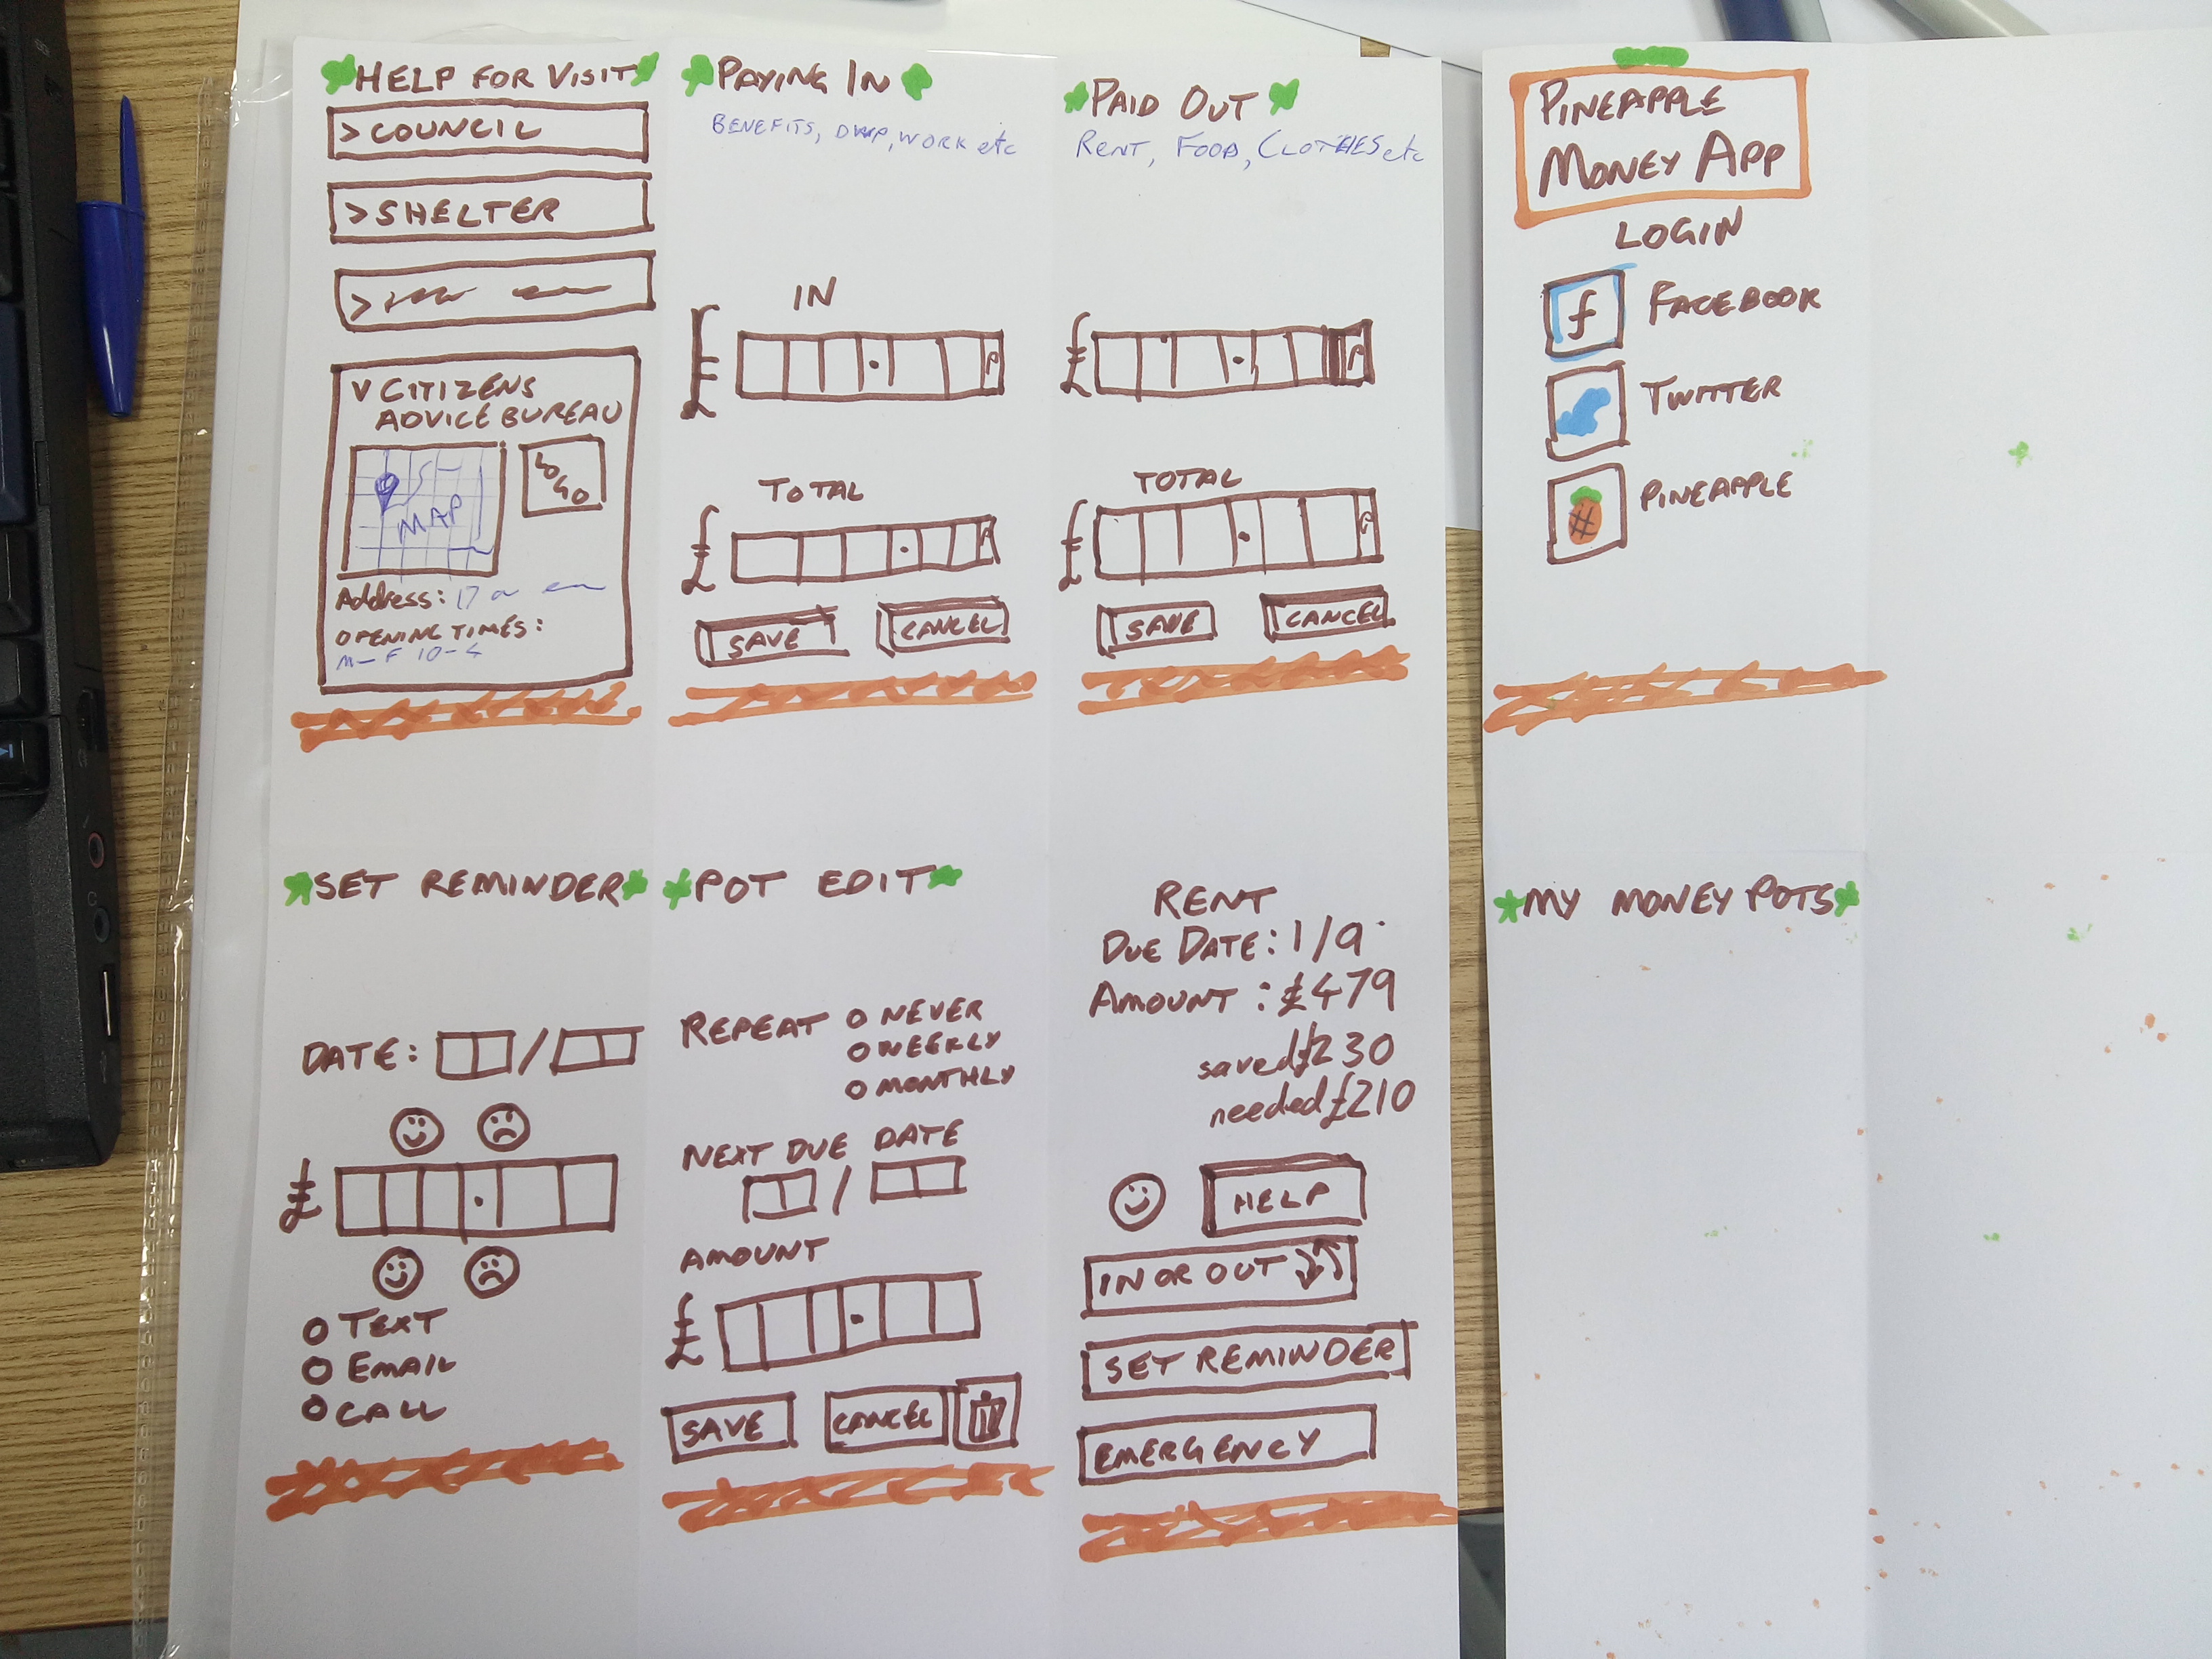 HELP FOR VISIT
> COUNCIL
> SHELTER
>
V CITIZENS
ADVICE BUREAU
MAP
LOGO
Address: 17
OPENING TIMES:
M - F 10-4
PAYING IN
BENEFITS, DWP, WORK etc
IN
£ . P
TOTAL
£ . P
SAVE CANCEL
PAID OUT
RENT, FOOD, CLOTHES etc
£ . P
TOTAL
£ . P
SAVE CANCEL
PINEAPPLE
MONEY APP
LOGIN
f FACEBOOK
TWITTER
PINEAPPLE
SET REMINDER
DATE: /
£ .
TEXT
EMAIL
CALL
POT EDIT
REPEAT O NEVER
O WEEKLY
O MONTHLY
NEXT DUE DATE
/
AMOUNT
£ .
SAVE CANCEL
RENT
DUE DATE: 1/9
AMOUNT : £479
saved £230
needed £210
HELP
IN OR OUT
SET REMINDER
EMERGENCY
MY MONEY POTS